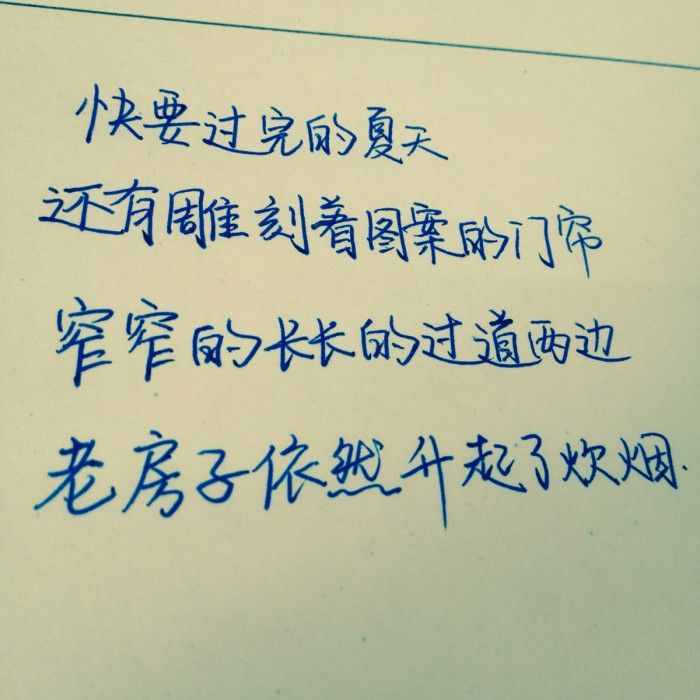 快要过完的夏天
还有雕刻着图案的门帘
窄窄的长长的过道两边
老房子依然升起了炊烟.